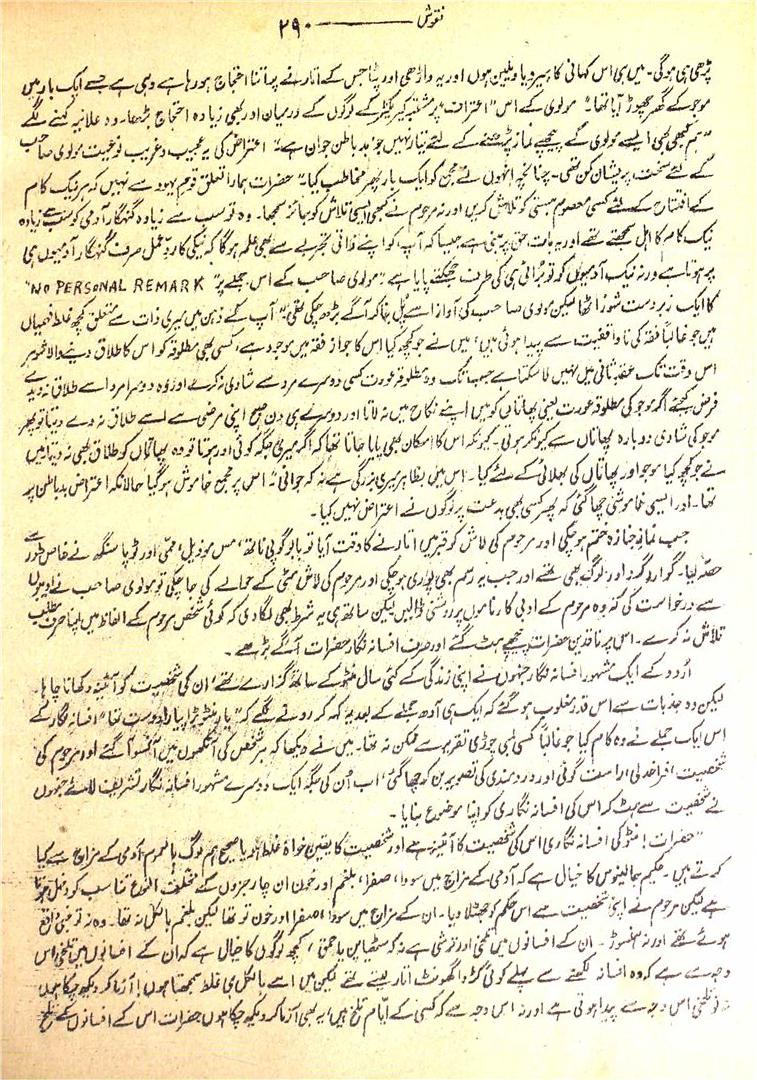 نقوش ——— ۲۹۰
پڑھی ہی ہوگی۔ میں ہی اس کہانی کا ہیرو یا ویلین ہوں اور یہ داڑھی اور پٹا جس کے اتارنے پر اتنا احتجاج ہو رہا ہے وہی ہے جسے ایک بار میں
موجو کے گھر چھوڑ آیا تھا" مولوی کے اس "اعتراف" پر مشتبہ کیریکٹر کے لوگوں کے درمیان اور بھی زیادہ احتجاج بڑھا۔ وہ علانیہ کہنے لگے
"ہم کبھی بھی ایسے مولوی کے پیچھے نماز پڑھنے کے لئے تیار نہیں جو بد باطن جوان ہے" اعتراض کی یہ عجیب و غریب نوعیت مولوی صاحب
کے لئے سخت پریشان کن تھی۔ چنانچہ انہوں نے مجمع کو ایک بار پھر مخاطب کیا" حضرات ہمارا تعلق قوم یہود سے نہیں کہ ہر نیک کام
کے افتتاح کے لئے کسی معصوم ہستی کو تلاش کریں اور نہ مرحوم نے کبھی ایسی تلاش کو جائز سمجھا۔ وہ تو سب سے زیادہ گنہگار آدمی کو سب سے زیادہ
نیک کام کا اہل سمجھتے تھے اور یہ بات حق پر مبنی ہے جیسا کہ آپ کو اپنے ذاتی تجربے سے بھی علم ہوگا کہ نیکی کا ردِعمل صرف گنہگار آدمیوں ہی
پر ہوتا ہے ورنہ نیک آدمیوں کو تو برائی ہی کی طرف جھکتے پایا ہے" مولوی صاحب کے اس جملے پر "NO PERSONAL REMARK"
کا ایک زبردست شور اٹھا لیکن مولوی صاحب کی آواز اسے پل بنا کر آگے بڑھ چکی تھی" آپ کے ذہن میں میری ذات سے متعلق کچھ غلط فہمیاں
ہیں جو غالباً فقہ کی ناواقفیت سے پیدا ہوئی ہیں! میں نے جو کچھ کیا اس کا جواز فقہ میں موجود ہے، کسی بھی مطلوقہ کو اس کا طلاق دینے والا شوہر
اس وقت تک عقد ثانی میں نہیں لا سکتا ہے جب تک وہ مطلوقہ عورت کسی دوسرے مرد سے شادی نہ کرے اور وہ دوسرا مرد اسے طلاق نہ دیدے
فرض کیجئے اگر موجو کی مطلوقہ عورت یعنی پھاتاں کو میں اپنے نکاح میں نہ لاتا اور دوسرے ہی دن صبح اپنی مرضی سے اسے طلاق نہ دے دیتا تو پھر
موجو کی شادی دوبارہ پھاتاں سے کیونکر ہوتی۔ کیونکہ اس کا امکان بھی پایا جاتا تھا کہ اگر میری جگہ کوئی اور ہوتا تو وہ پھاتاں کو طلاق بھی نہ دیتا میں
نے جو کچھ کیا موجو اور پھاتاں کی بھلائی کے لئے کیا۔ اس میں بظاہر میری بزرگی ہے نہ کہ جوانی" اس پر مجمع خاموش ہو گیا حالانکہ اعتراض بد باطن پر
تھا۔ اور ایسی خاموشی چھا گئی کہ پھر کسی بھی بدعت پر لوگوں نے اعتراض نہیں کیا۔
جب نماز جنازہ ختم ہو چکی اور مرحوم کی لاش کو قبر میں اتارنے کا وقت آیا تو بابو گوپی ناتھ، مس موذیل، ممی اور ٹوبا سنگھ نے خاص طور سے
حصہ لیا۔ گوارد گرد اور لوگ بھی تھے اور جب یہ رسم بھی پوری ہو چکی اور مرحوم کی لاش مٹی کے حوالے کی جا چکی تو مولوی صاحب نے ادیبوں
سے درخواست کی کہ وہ مرحوم کے ادبی کارناموں پر روشنی ڈالیں لیکن ساتھ ہی یہ شرط بھی لگا دی کہ کوئی شخص مرحوم کے الفاظ میں اپنا حرف مطلب
تلاش نہ کرے۔ اس پر ناقدین حضرات پیچھے ہٹ گئے اور صرف افسانہ نگار حضرات آگے بڑھے۔
اردو کے ایک مشہور افسانہ نگار جنہوں نے اپنی زندگی کے کئی سال منٹو کے ساتھ گزارے تھے، ان کی شخصیت کو آئینہ دکھانا چاہا۔
لیکن وہ جذبات سے اس قدر مغلوب ہو گئے کہ ایک ہی آدھ جملے کے بعد یہ کہہ کر رونے لگے کہ "یار منٹو بڑا پیارا دوست تھا" افسانہ نگار کے
اس ایک جملے نے وہ کام کیا جو غالباً کسی لمبی چوڑی تقریر سے ممکن نہ تھا۔ میں نے دیکھا کہ ہر شخص کی آنکھوں میں آنسو آ گئے اور مرحوم کی
شخصیت، فراخدلی، راست گوئی اور دردمندی کی تصویر بن کر چھا گئی، اب ان کی جگہ ایک دوسرے مشہور افسانہ نگار تشریف لائے جنہوں
نے شخصیت سے ہٹ کر اس کی افسانہ نگاری کو اپنا موضوع بنایا۔
"حضرات! منٹو کی افسانہ نگاری اس کی شخصیت کا آئینہ ہے اور شخصیت کا یقین خواہ غلط ہو یا صحیح ہم لوگ بالعموم آدمی کے مزاج سے کیا
کرتے ہیں۔ حکیم جالینوس کا خیال ہے کہ آدمی کے مزاج میں سودا، صفرا، بلغم اور خون ان چار جزوں کے مختلف النوع تناسب کو دخل ہوتا
ہے لیکن مرحوم نے اپنی شخصیت سے اس حکم کو جھٹلا دیا۔ ان کے مزاج میں سودا، صفرا اور خون تو تھا لیکن بلغم بالکل نہ تھا۔ وہ نہ تو غبی واقع
ہوئے تھے اور نہ ہنسوڑ۔ ان کے افسانوں میں تلخی اور ترشی ہے نہ کہ سٹھیاپن یا حمق، کچھ لوگوں کا خیال ہے کہ ان کے افسانوں میں تلخی اس
وجہ سے ہے کہ وہ افسانہ لکھنے سے پہلے کوئی کڑوا گھونٹ اتار لیتے تھے لیکن میں اسے بالکل ہی غلط سمجھتا ہوں! آزما کر دیکھ چکا ہوں
نہ تو تلخی اس وجہ سے پیدا ہوتی ہے اور نہ اس وجہ سے کہ کسی کے ایام تلخ ہیں، یہ بھی آزما کر دیکھ چکا ہوں حضرات اس کے افسانوں کے تلخ